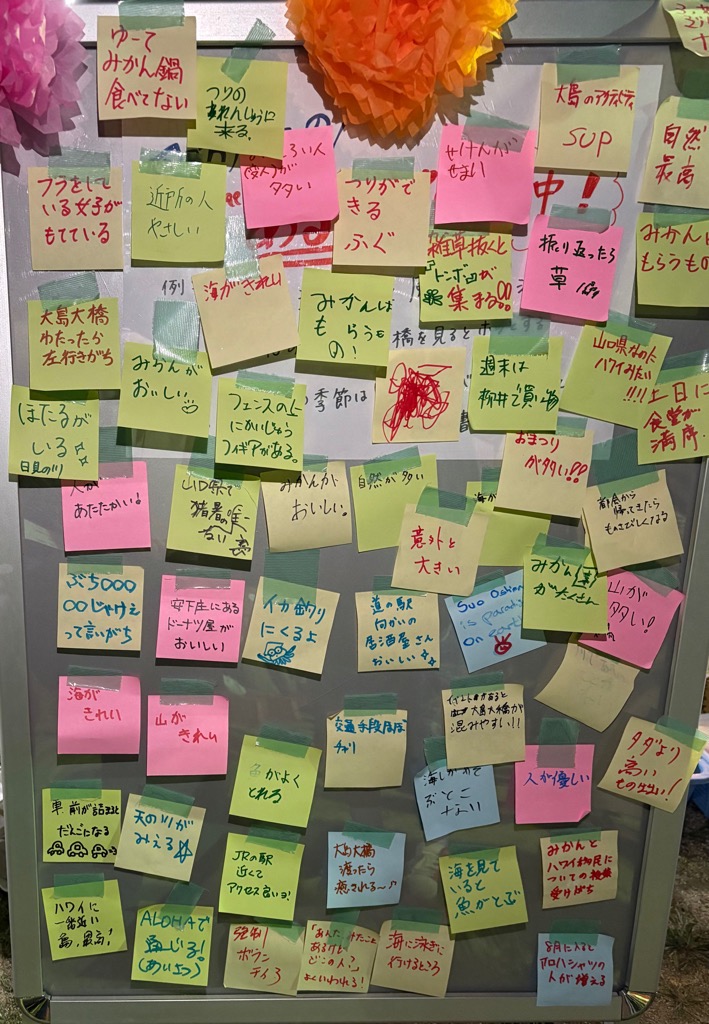 ゆーて
みかん鍋
食べてない
つりの
れんしゅうに
来る。
大島のアクティビティ
SUP
自然
最高
フラをして
いる女子が
もてている
近所の人
やさしい
多い
つりができ
る
ふぐ
せけんが
せまい
中!
振り返ったら
草
みかんは
もらうもの
雑草抜くと
トンボが
集まる!!
海がきれい
みかんは
もらうも
の!
例
橋を見るとホッとする
季節は
大島大橋
ゆたったか
左行きがち
みかんが
おいしい
フェンスの上
にかいじゅう
フィギアがある。
週末は
柳井で買い物
山口県なのに
ハワイみたい
!!!
土日に
食堂が
満席
ほたるが
いる
おまつり
が多い!!
人が
あたたかい!
山口県で
ない
みかんが
おいしい。
自然が多い
意外と
大きい
海が
都会から
帰ってきたら
ものさびしくなる
みかん
がたくさん
ぶち○○○
○○じゃけえ
って言いがち
安下庄にある
ドーナツ屋が
おいしい
イカ釣り
にくるよ
道の駅
向かいの
居酒屋さん
おいしい
Suo Oshima
is paradise
on earth
山が
多い!
海が
きれい
山が
きれい
魚がよく
とれる
交通手段ほぼ
チャリ
大島大橋が
混みやすい!!
人が優しい
タダより
高い
もの
車、前が詰まると
だんごになる
天の川が
みえる
JRの駅
近くて
アクセス良いヨ!
大島大橋
渡ったら
癒される〜♪
海を見て
いると
魚がとぶ
みかんと
ハワイ移民に
ついての
受けがち
ハワイに
一番近い
島、最高!
ALOHAで
通じる!
(あいさつ)
強制
ボランティア
「あんた
あるけど
どこの人?」
よくいわれる!
海に泳ぎに
行けるところ
8月に入ると
アロハシャツの
人が増える